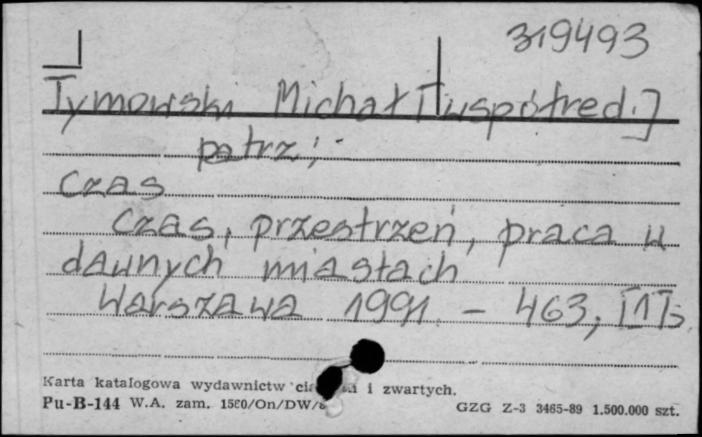 319493
Tymowski Michał [współred.]
patrz:
Czas
Czas, przestrzeń, praca w
dawnych miastach
Warszawa 1991 - 463, [1] s.
Karta katalogowa wydawnictw i zwartych.
Pu-B-144 W.A. zam. 1580/On/DW/
GZG Z-3 3465-89 1.500.000 szt.